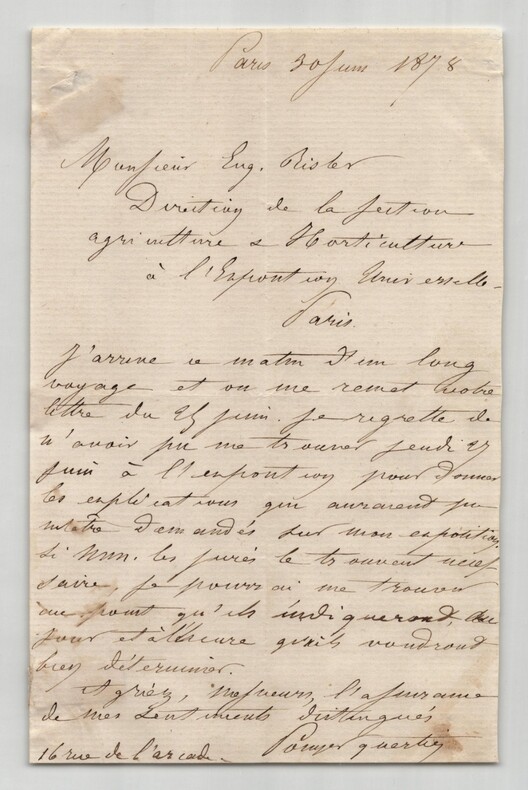 Paris 30 Juin 1878
Monsieur Eug. Risler
Direction de la section
agriculture & Horticulture
à l'Exposition Universelle
Paris.
J'arrive ce matin d'un long
voyage et on me remet votre
lettre du 25 juin. Je regrette de
n'avoir pu me trouver jeudi 27
juin à l'exposition pour donner
les explications qui auraient pu
m'être demandés sur mon exposition.
Si Mrs. les jurés le trouvent néces
saire, je pourrai me trouver
au point qu'ils indiqueront, au
jour et à l'heure qu'ils voudront
bien déterminer.
Agréez, Messieurs, l'assurance
de mes sentiments distingués
Pouyer quertier
16 rue de l'arcade.